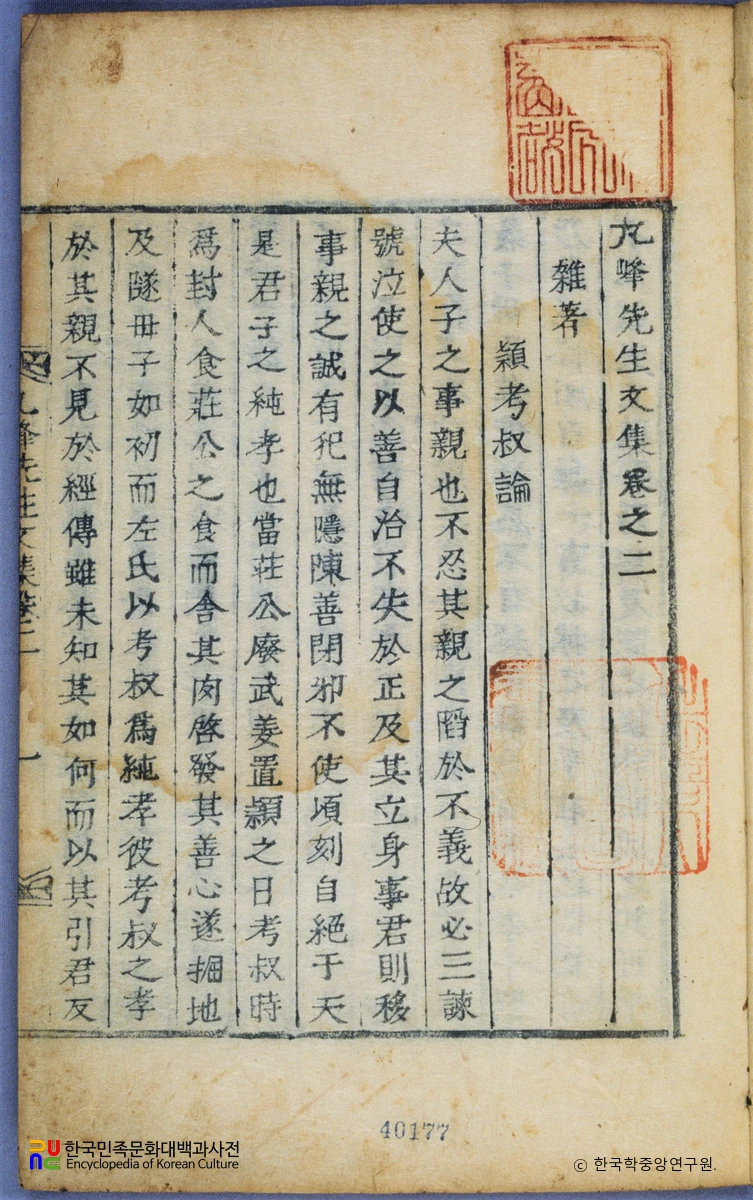 九峰先生文集卷之二
雜著
潁考叔論
夫人子之事親也不忍其親之陷於不義故必三諫
號泣使之以善自治不失於正及其立身事君則移
事親之誠有犯無隱陳善閉邪不使頃刻自絕于天
是君子之純孝也當莊公廢武姜置潁之日考叔時
爲封人食莊公之食而舍其肉啓發其善心遂掘地
及隧母子如初而左氏以考叔爲純孝彼考叔之孝
於其親不見於經傳雖未知其如何而以其引君反
九峰先生文集卷二
一
40177
한국민족문화대백과사전
Encyclopedia of Korean Culture
© 한국학중앙연구원.